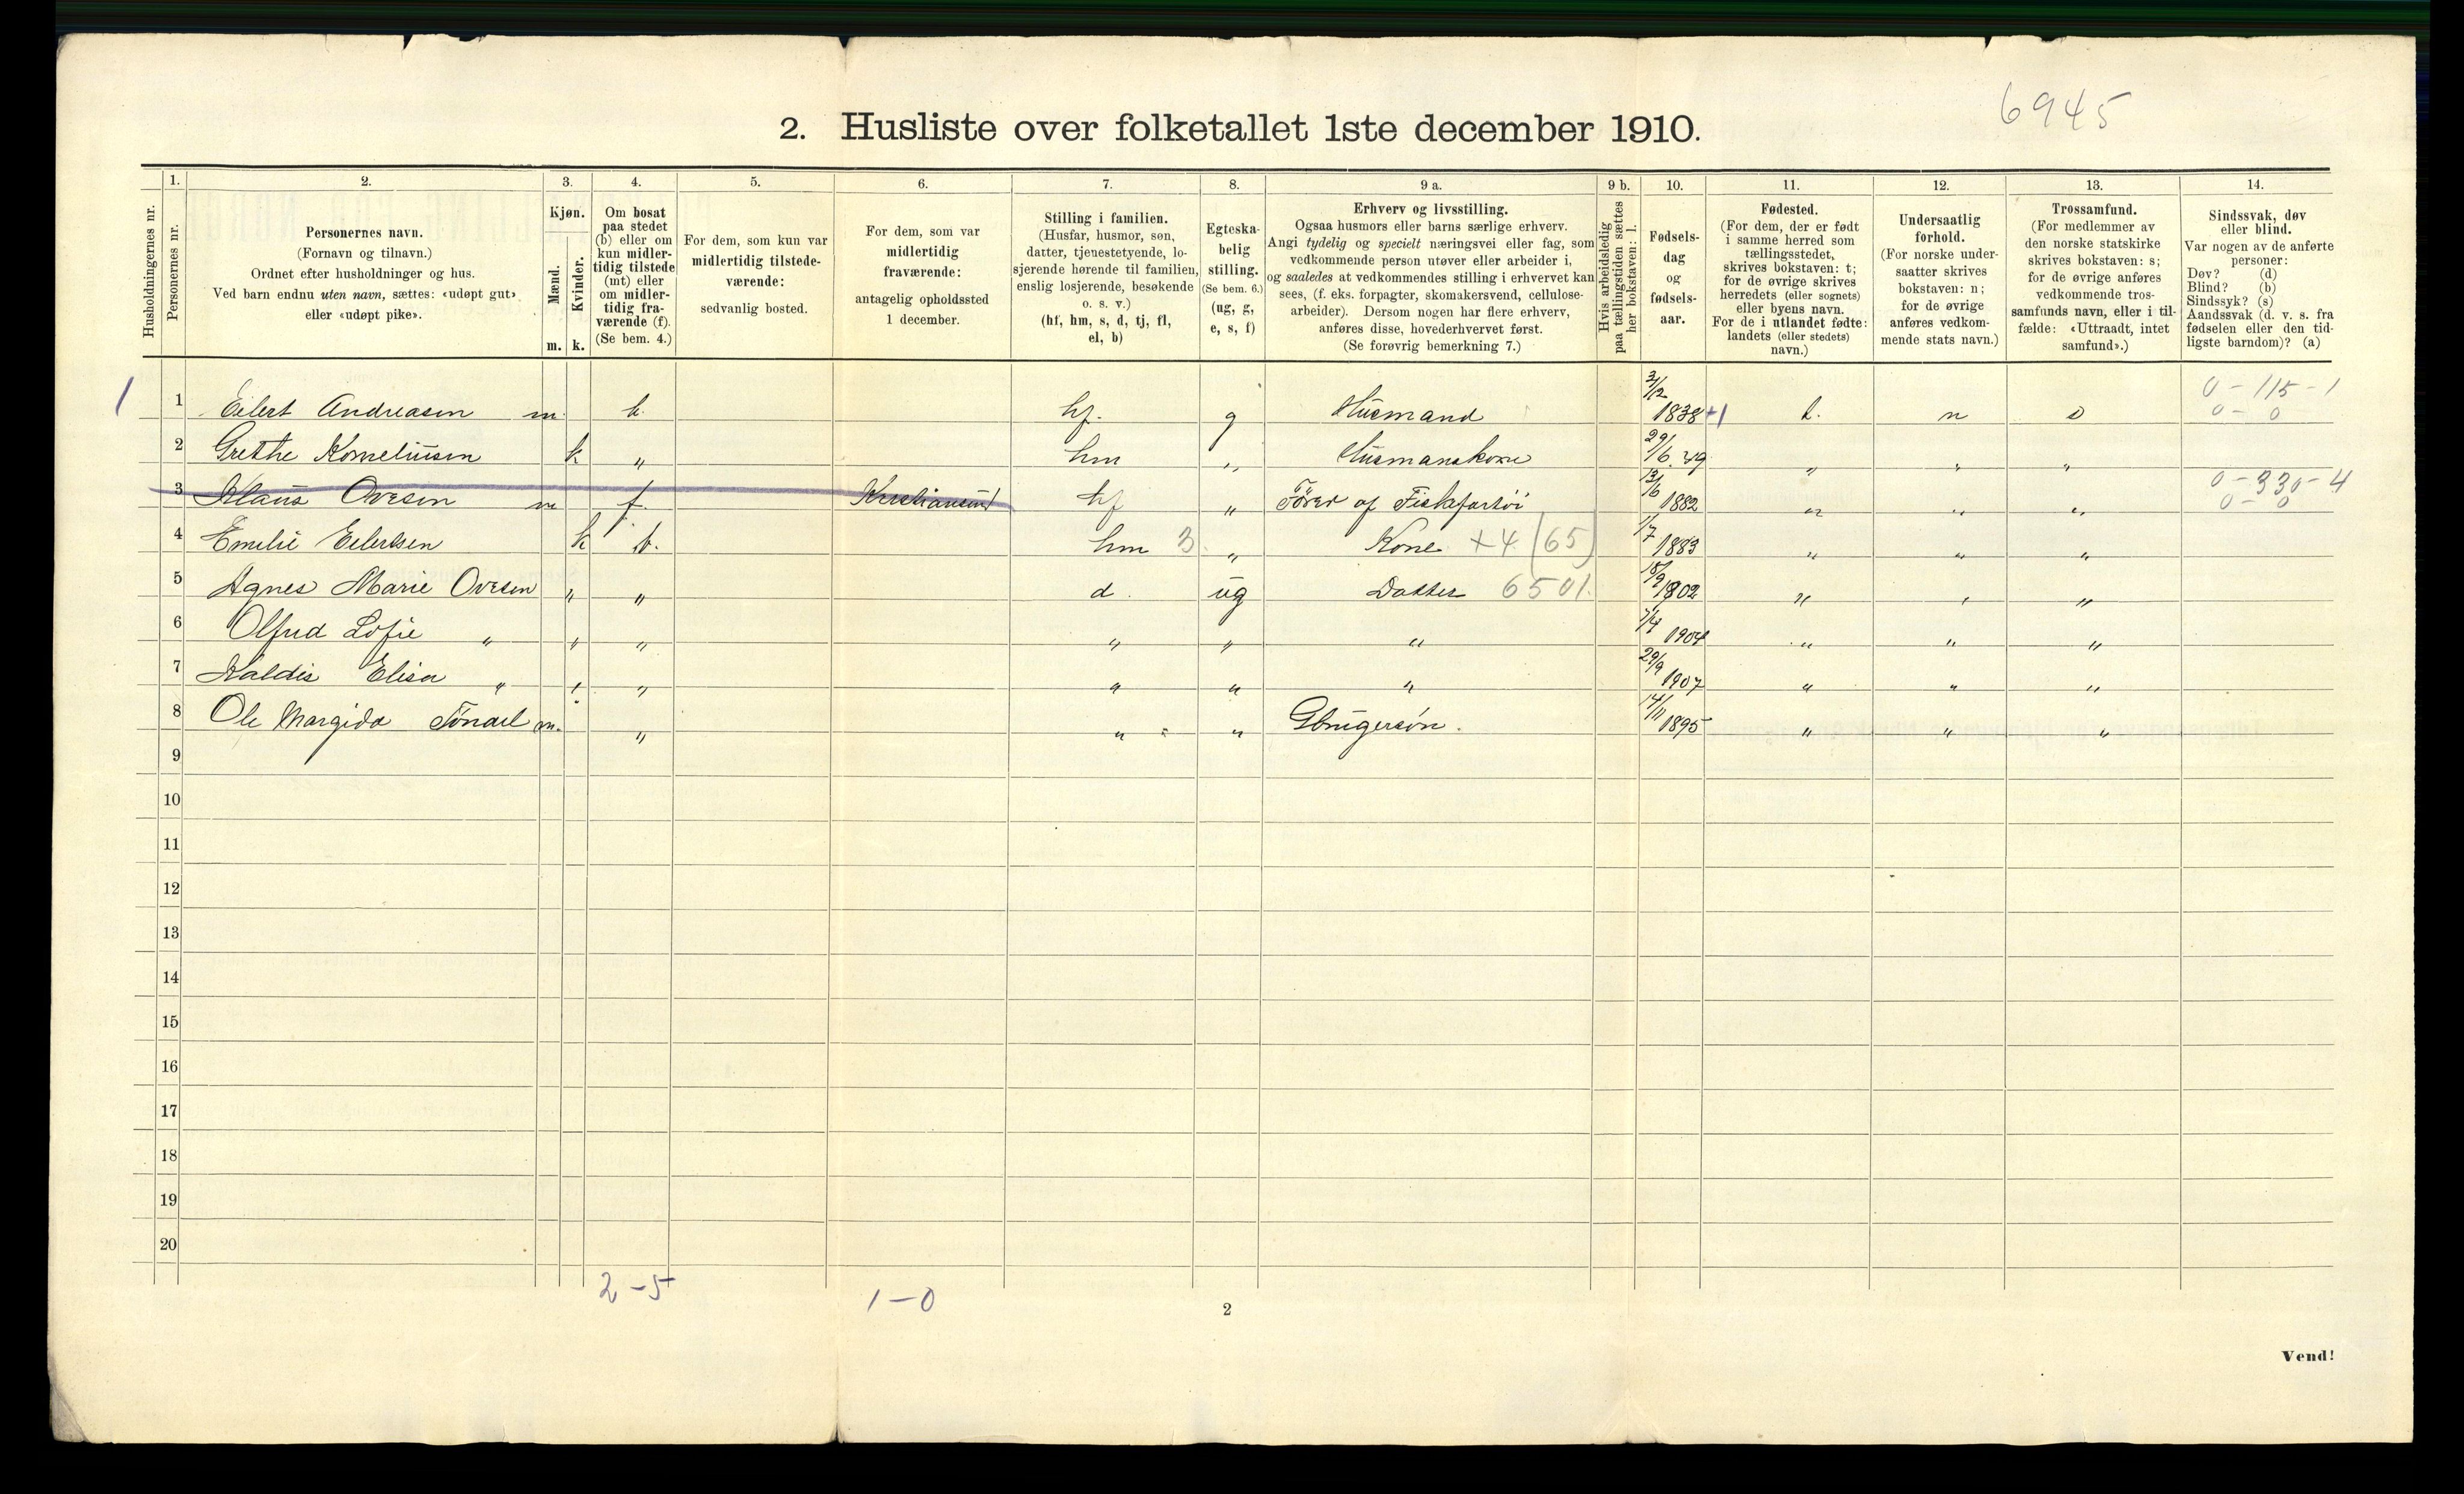 6945
2. Husliste over folketallet 1ste december 1910.
Husholdningernes nr.
1.
Personernes nr.
2.
Personernes navn.
(Fornavn og tilnavn.)
Ordnet efter husholdninger og hus.
Ved barn endnu uten navn, sættes: «udøpt gut»
eller «udøpt pike».
3.
Kjøn.
Mænd.
Kvinder.
m. k.
4.
Om bosat
paa stedet
(b) eller om
kun midler-
tidig tilstede
(mt) eller
om midler-
tidig fra-
værende (f).
(Se bem. 4.)
5.
For dem, som kun var
midlertidig tilstede-
værende:
sedvanlig bosted.
6.
For dem, som var
midlertidig
fraværende:
antagelig opholdssted
1 december.
7.
Stilling i familien.
(Husfar, husmor, søn,
datter, tjenestetyende, lo-
sjerende hørende til familien,
enslig losjerende, besøkende
o. s. v.)
(hf, hm, s, d, tj, fl,
el, b)
8.
Egteska-
belig
stilling.
(Se bem. 6.)
(ug, g,
e, s, f)
9 a.
Erhverv og livsstilling.
Ogsaa husmors eller barns særlige erhverv.
Angi tydelig og specielt næringsvei eller fag, som
vedkommende person utøver eller arbeider i,
og saaledes at vedkommendes stilling i erhvervet kan
sees, (f. eks. forpagter, skomakersvend, cellulose-
arbeider). Dersom nogen har flere erhverv,
anføres disse, hovederhvervet først.
(Se forøvrig bemerkning 7.)
9 b.
Hvis arbeidsledig
paa tællingstiden sættes
her bokstaven: l.
10.
Fødsels-
dag
og
fødsels-
aar.
11.
Fødested.
(For dem, der er født
i samme herred som
tællingsstedet,
skrives bokstaven: t;
for de øvrige skrives
herredets (eller sognets)
eller byens navn.
For de i utlandet fødte:
landets (eller stedets)
navn.)
12.
Undersaatlig
forhold.
(For norske under-
saatter skrives
bokstaven: n;
for de øvrige
anføres vedkom-
mende stats navn.)
13.
Trossamfund.
(For medlemmer av
den norske statskirke
skrives bokstaven: s;
for de øvrige anføres
vedkommende tros-
samfunds navn, eller i til-
fælde: «Uttraadt, intet
samfund».)
14.
Sindssvak, døv
eller blind.
Var nogen av de anførte
personer:
Døv? (d)
Blind? (b)
Sindssyk? (s)
Aandssvak (d. v. s. fra
fødselen eller den tid-
ligste barndom)? (a)
1 1 Eilert Andreasen m. b. hf. g Husmand 1838 +1 t. n s 0-115-1 0-0
2 Grethe Korneliusen k " hm " Husmanskone 29/6 49 " " "
3 Klaus Ovesen m f. Kristiansund hf " Fører af Fiskefartøi 13/6 1882 " " " 0-330-4 0-0
4 Emelie Eilertsen k b. hm 3 " Kone +4 (65) 1/7 1883 " " "
5 Agnes Marie Ovesen " " d. ug Datter 6501. 1902 " " "
6 Olfrid Sofie " " " " " " 7/4 1904 " " "
7 Haldis Elisa " " " " " " 29/9 1907 " " "
8 Ole Margido m. " " " 14/11 1895 " " "
9
10
11
12
13
14
15
16
17
18
19
20
2-5
1-0
2
Vend!